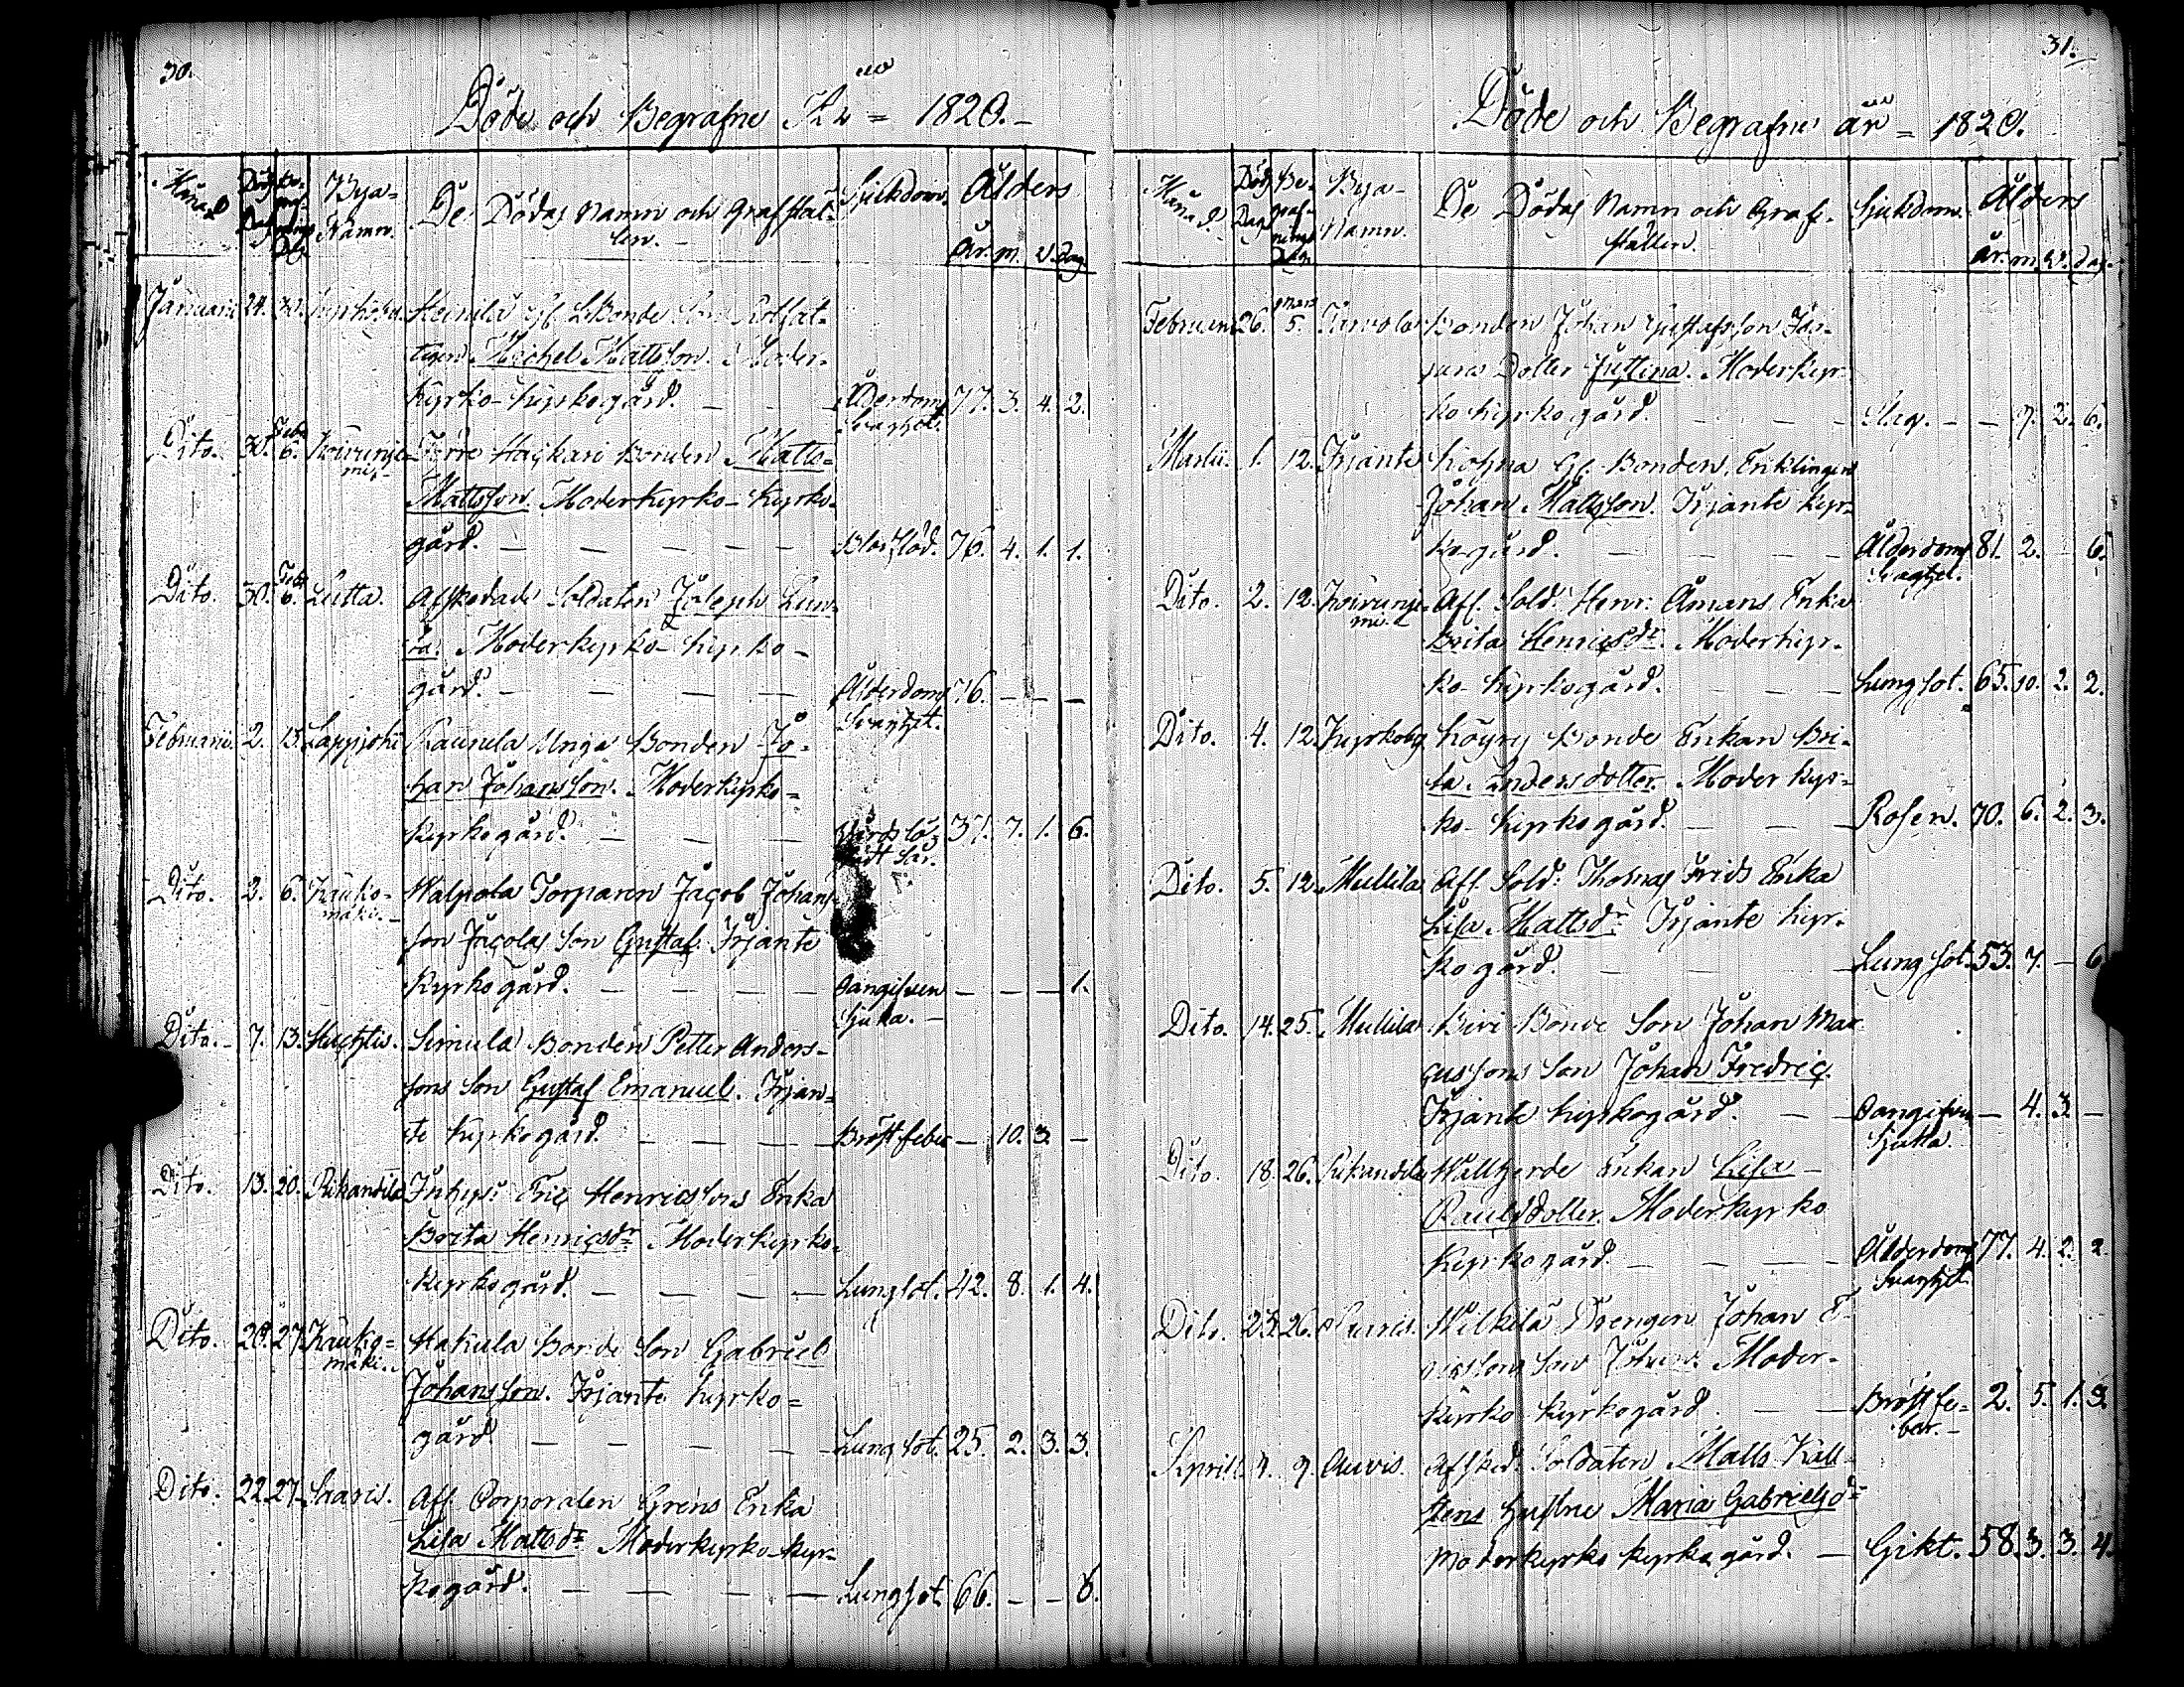 30.
Döde och Begrafne År = 1820.
Månad
Döds Dag
Begrafnings Dag
Bya-
Namn.
De Dödas Namn och Grafstäl-
len.
Sjukdom.
Ålders
År. m. v. dag.
Januarii 24. 30. Kyrkoby. Heinilä Gl. Bonde
tigen Michel Mattsson. Moder-
Kyrko-Kyrkogård. — — Ålderdoms 77. 3. 4. 2.
Svaghet.
Dito. 30. Febr 6. Koivunje- Haikari Bonden Matts
mi.
Mattsson. Moderkyrko-Kyrko-
gård. — — — — 76. 4. 1. 1.
Dito. 30. Febr 6. Lutta. Afskedade Soldaten Joseph Lun-
Moderkyrko-kyrko-
gård. — — — Ålderdoms 76. — — —
Svaghet.
Februarii. 2. 13. Lappjoki Raunula Unga Bonden Jo-
han Johansson. Moderkyrko-
Kyrkogård. — — 37. 7. 1. 6.
Dito. 2. 6. Kauko- Walpola Torparen Jacob Johans-
mäki.
son Jacolas Son Gustaf. Irjante
Kyrkogård. — — — Oangifven — — — 1.
Sjuka. —
Dito. 7. 13. Huhtis. Simula Bonden Petter Anders-
sons Son Gustaf Emanuel. Irjan-
te Kyrkogård. — — — Bröstfeber — 10. 3. —
Dito. 13. 20. Pikandila Inhys: Eric Henricssons Enka
Brita Henricsdr. Moderkyrko-
Kyrkogård. — — — Lungsot. 42. 8. 1. 4.
Dito. 20. 27. Kauko- Hakula Bonde Son Gabriel
mäki.
Johansson. Irjante kyrko-
gård. — — — — Lungsot. 25. 2. 3. 3.
Dito. 22. 27. Saaris. Afl. Corporalen Gréns Enka
Lisa Mattsdr. Moderkyrko-kyr-
kogård. — — — Lungsot. 66. — — 6.
31.
Döde och Begrafne år = 1820.
Månad.
Döds Dag
Begrafnings Dag
Bya-
Namn.
De Dödas Namn och Graf-
ställen.
Sjukdom.
Ålders
år. m. v. dag.
Februarii 26. Mars 5. Bonden Johan Gustafsson
Dotter Justina. Moderkyr-
ko kyrkogård. — — Slag. — — 9. 2. 6.
Martii. 1. 12. Irjante Kohna Gl. Bonden. Enklingen
Johan Mattsson. Irjante kyr-
kogård. — — — Ålderdoms 81. 2. — 6.
Svaghet.
Dito. 2. 12. Koivunje- Afl. Sold. Henr. Åmans Enka
mi.
Brita Henricsdr. Moderkyr-
ko-kyrkogård. — — Lungsot. 65. 10. 2. 2.
Dito. 4. 12. Kyrkoby Köyry Bonde Enkan Bri-
ta Andersdotter. Moder kyr-
ko-kyrkogård. — — Rosen. 70. 6. 2. 3.
Dito. 5. 12. Mullila Afl. Sold. Thomas Frids Enka
Lisa Mattsdr. Irjante kyr-
kogård. — — — Lungsot. 53. 7. — 6
Dito. 14. 25. Mullila Bonde Son Johan Mar-
cussons Son Johan Fredric.
Irjante kyrkogård. — — Oangifven — 4. 3. —
Sjukka.
Dito. 18. 26. Pikandila Enkan Lisa
Paulsdotter. Moderkyrko
Kyrkogård. — — — Ålderdoms 77. 4. 2. 2.
Svaghet.
Dito. 23. 26. Auvis. Wilkilä Drengen Johan E-
ricssons Son Johan. Moder-
kyrko kyrkogård. — — Bröstfe- 2. 5. 1. 3.
ber. —
April. 4. 9. Auvis. Afsked. Soldaten Matts Käll-
stens Hustru Maria Gabrielsdr
Moderkyrko kyrkogård. — Gikt. 58. 3. 3. 4.